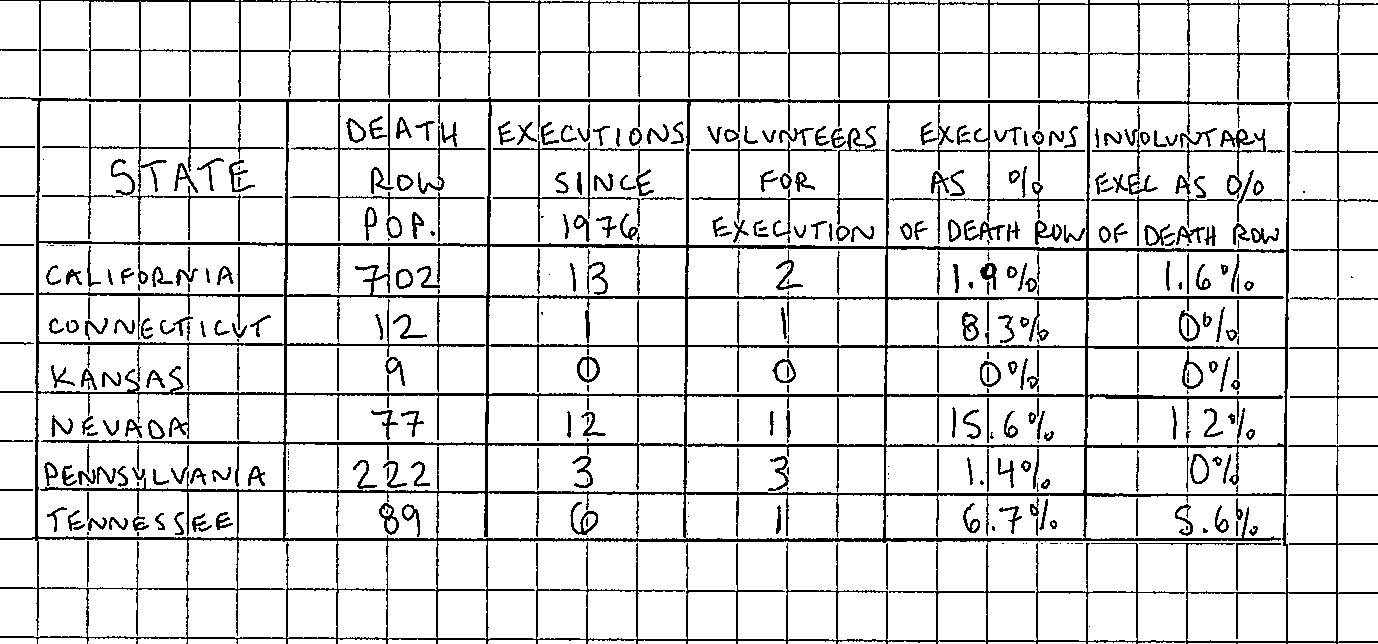 STATE DEATH ROW POP. EXECUTIONS SINCE 1976 VOLUNTEERS FOR EXECUTION EXECUTIONS AS % OF DEATH ROW INVOLUNTARY EXEC AS % OF DEATH ROW
CALIFORNIA 702 13 2 1.9% 1.6%
CONNECTICUT 12 1 1 8.3% 0%
KANSAS 9 0 0 0% 0%
NEVADA 77 12 11 15.6% 1.2%
PENNSYLVANIA 222 3 3 1.4% 0%
TENNESSEE 89 6 1 6.7% 5.6%